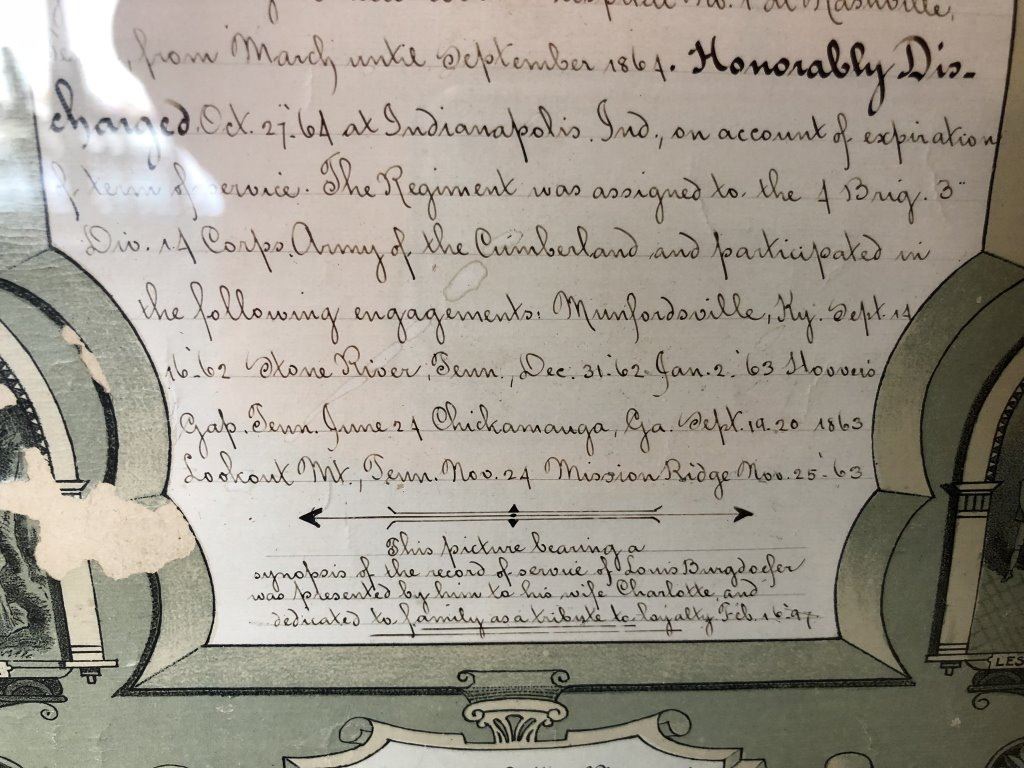 Hospital No. 1 at Nashville,
, from March until September 1864. Honorably Dis-
charged. Oct. 27"-64 at Indianapolis. Ind., on account of expiration
of term of service. The Regiment was assigned to the 4 Brig. 3"
Div. 14 Corps. Army of the Cumberland and participated in
the following engagements: Munfordsville, Ky. Sept. 14
16-'62 Stone River, Tenn., Dec. 31-'62 Jan. 2-'63 Hoovers
Gap. Tenn. June 24 Chickamauga, Ga. Sept. 19-20 1863
Lookout Mt., Tenn. Nov. 24 Mission Ridge Nov. 25-'63
This picture bearing a
synopsis of the record of service of Louis Burgdoefer
was presented by him to his wife Charlotte, and
dedicated to family as a tribute to loyalty Feb. 16-97
LES